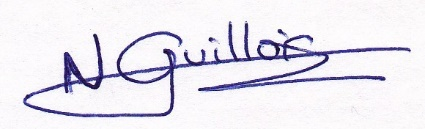 N Guillois